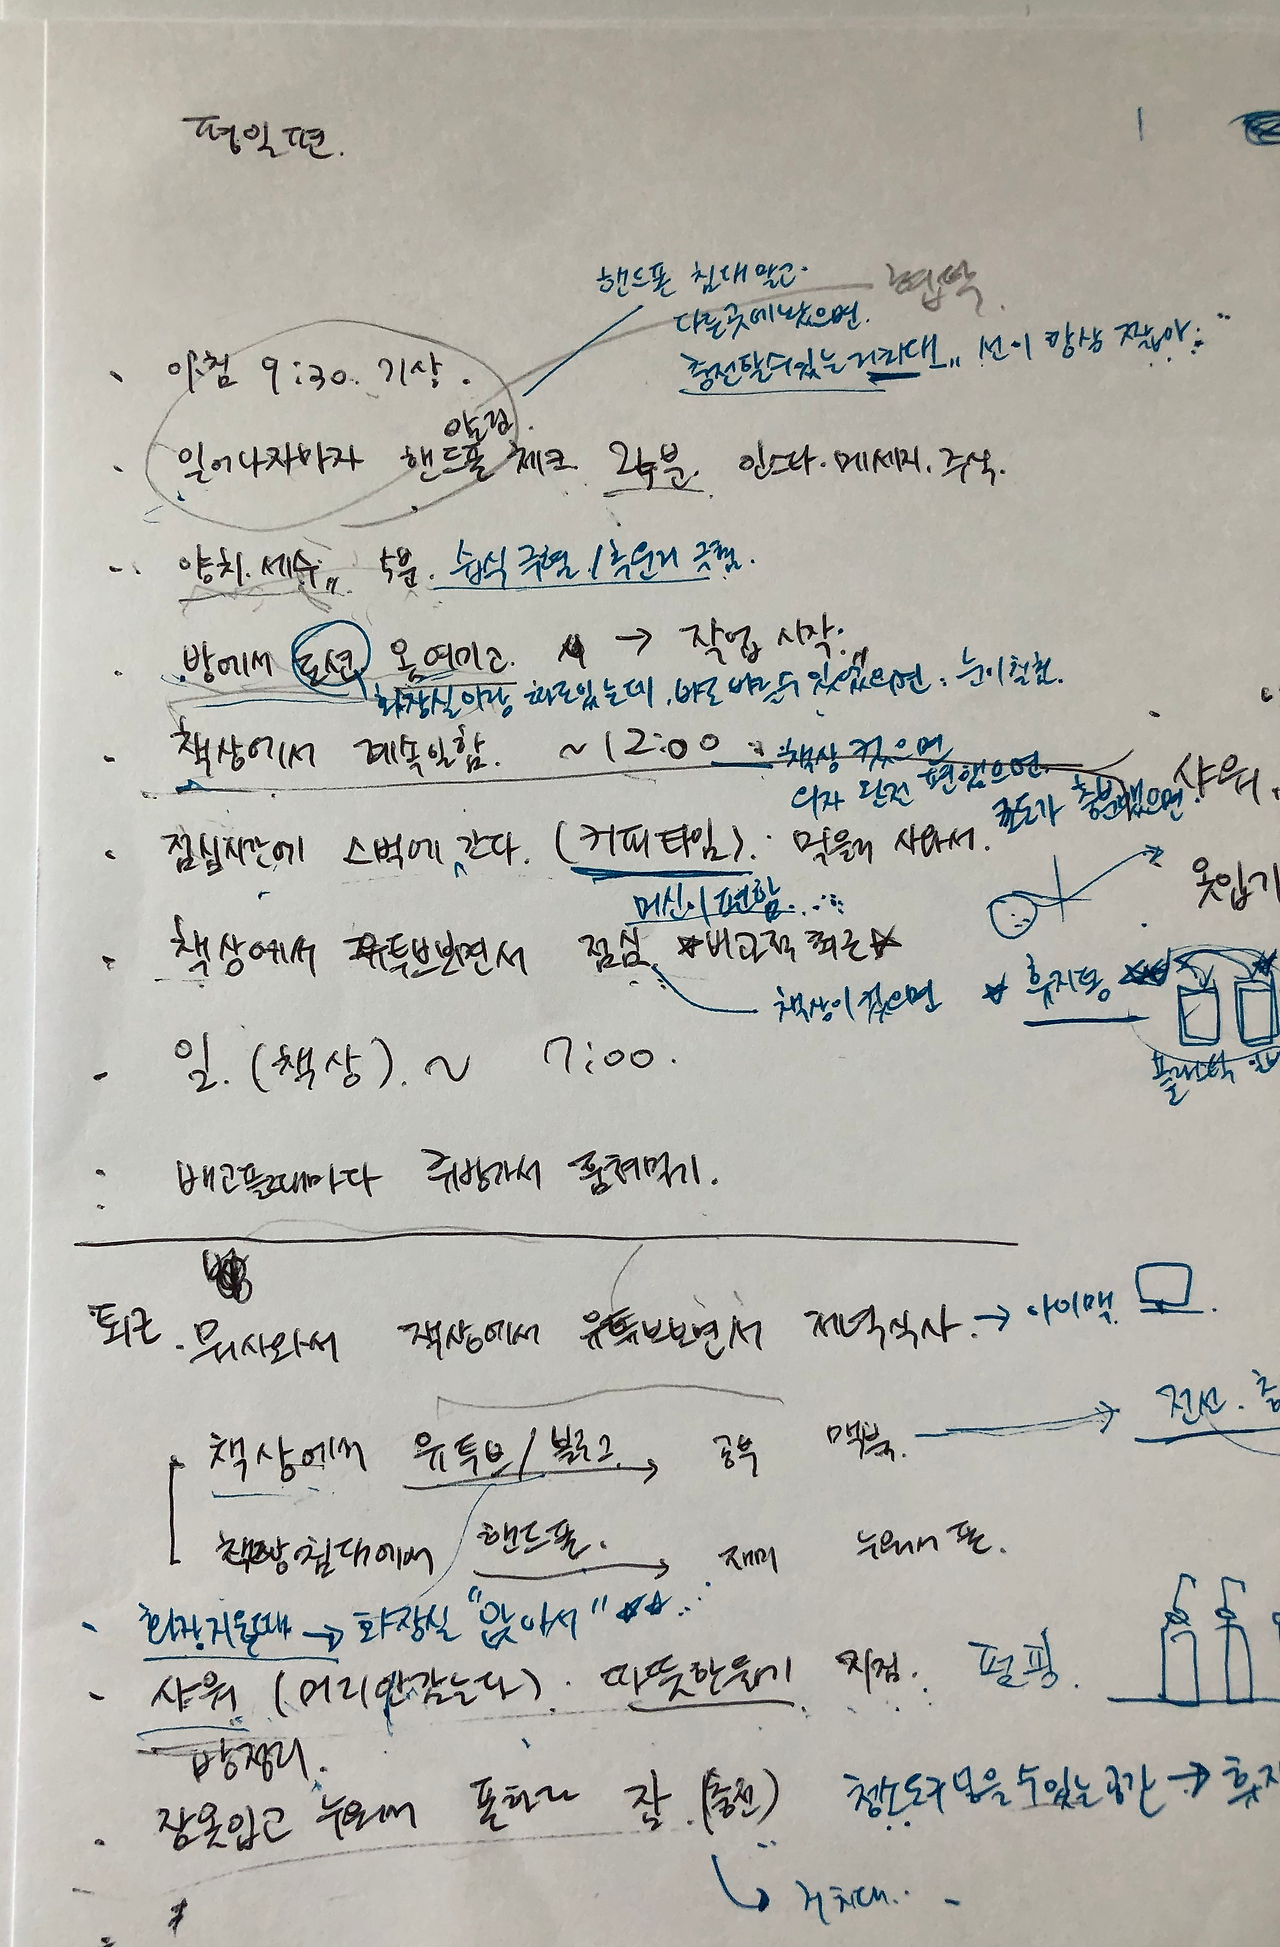 평일편.
핸드폰 침대 말고
다른곳에 놨으면.
협탁.
충전할수있는 거치대 선이 항상 짧아..
아침 9:30. 기상.
알람.
일어나자마자 핸드폰 체크 20분. 인스타. 메세지. 주식.
양치. 세수 5분. 습식 구현 /
방에서 로션 옷 여미고. → 작업 시작.
화장실이랑 따로있는데, 바로 바를수 있었으면.
책상에서 계속일함. ~12:00
책상 컸으면
의자 완전 편했으면.
샤워.
점심시간에 스벅에 간다. (커피타임). 먹을거 사와서.
옷입기
머신이 편함.
책상에서 유튜브보면서 점심 ☆비교적 최근☆
책상이 컸으면 ☆ 휴지통
플라스틱 일반
일. (책상). ~ 7:00.
배고플때마다 주방가서 훔쳐먹기.
퇴근. 뭐사와서 책상에서 유튜브보면서 저녁식사. → 아이맥
책상에서 유튜브/블로그 → 공부 맥북. → 전선.
침대에서 핸드폰. → 재미 누워서 폰.
화장지울때 → 화장실 "앉아서" ☆☆
샤워 (머리안감는다). 따뜻한물기 직접. 펌핑.
방정리.
잠옷입고 누워서 폰하다 잠. (충전) 청소도구 넣을수있는 공간 → 휴지
거치대..